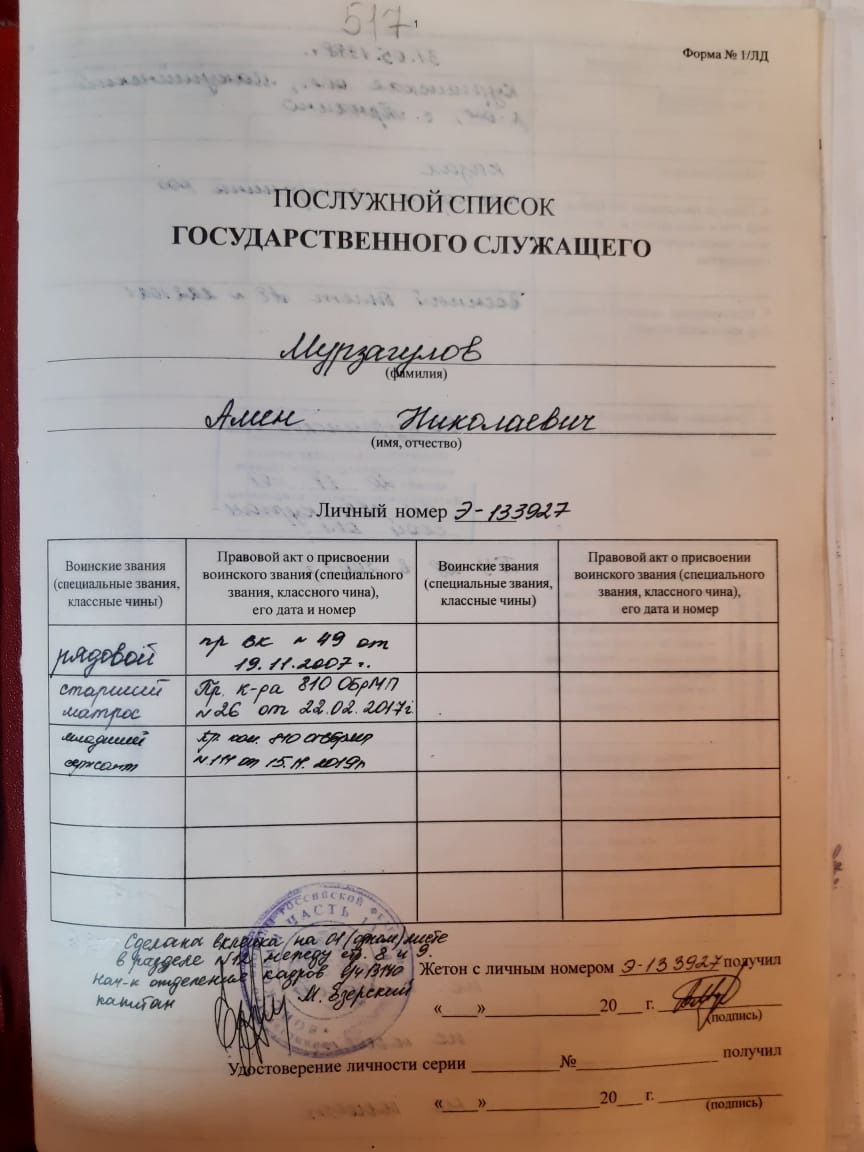 517
1
Форма № 1/ЛД
ПОСЛУЖНОЙ СПИСОК
ГОСУДАРСТВЕННОГО СЛУЖАЩЕГО
Мурзагулов
(фамилия)
Амен Николаевич
(имя, отчество)
Личный номер Э-133927
Воинские звания
(специальные звания,
классные чины)
Правовой акт о присвоении
воинского звания (специального
звания, классного чина),
его дата и номер
Воинские звания
(специальные звания,
классные чины)
Правовой акт о присвоении
воинского звания (специального
звания, классного чина),
его дата и номер
рядовой
пр ВК № 49 от
19.11.2007 г.
старший
матрос
Пр. к-ра 810 ОБрМП
№26 от 22.02.2017г
младший
сержант
Пр. ком. 810
от 2019г
Сделана вклейка на 01 (одном) листе
в разделе №12 между стр. 8 и 9.
Нач-к отделения кадров в/ч 13140
капитан М. Езерский
РОССИЙСКОЙ
ЧАСТЬ
Жетон с личным номером Э-133927 получил
«___»____________20___ г.
(подпись)
Удостоверение личности серии __________№________________ получил
«___»____________20___ г.
(подпись)